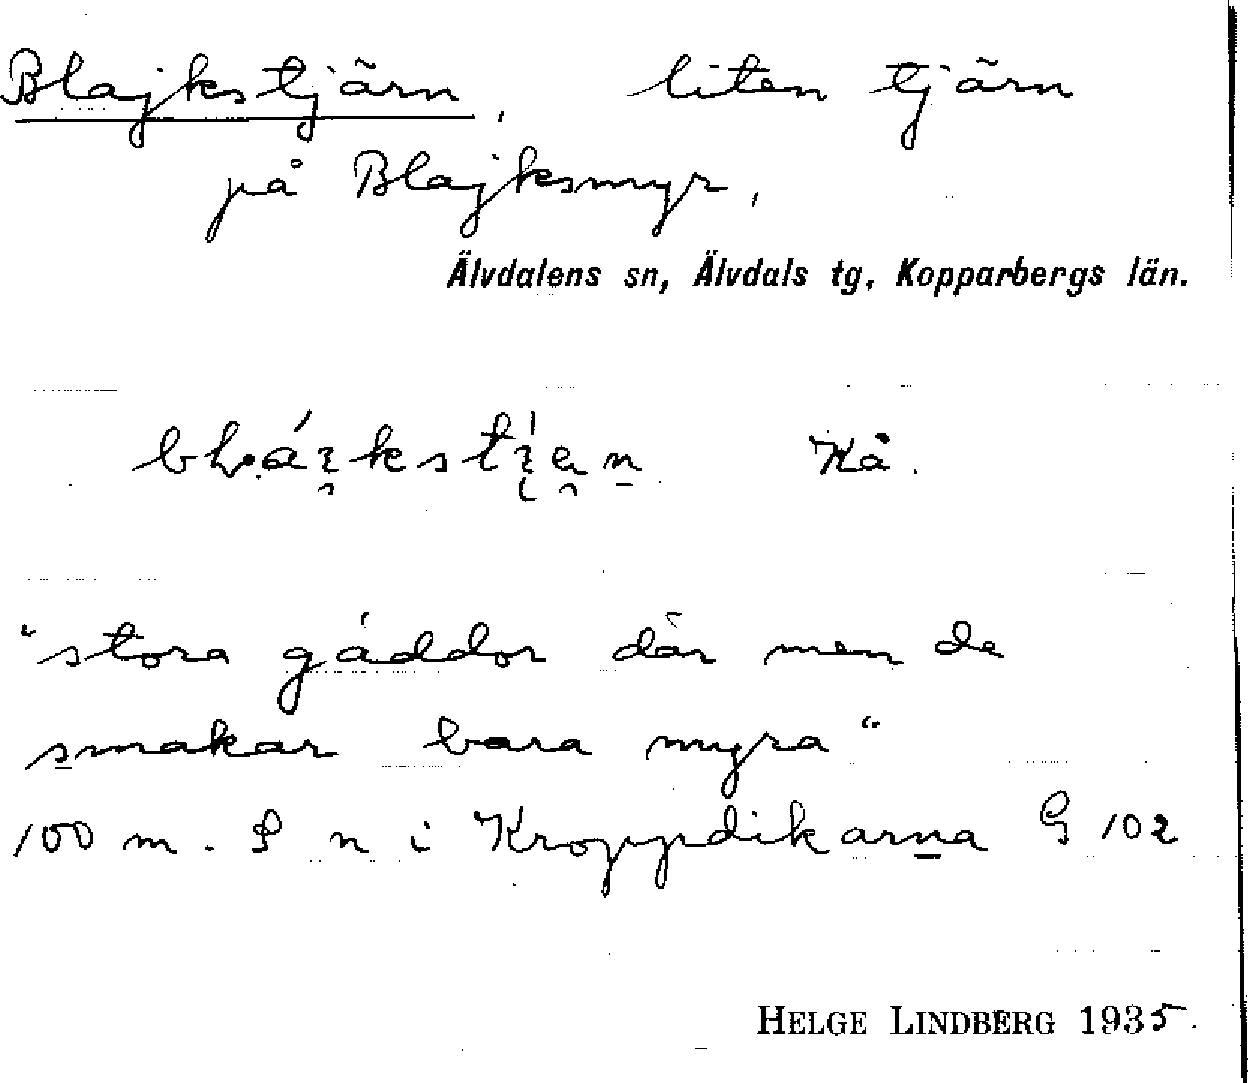 Blajkstjärn, liten tjärn
på Blajksmyr,
Älvdalens sn, Älvdals tg, Kopparbergs län.
Kå.
"stora gäddor där men de
smakar bara myra"
100 m. S n i Kroppdikarna G 102
HELGE LINDBERG 1935.